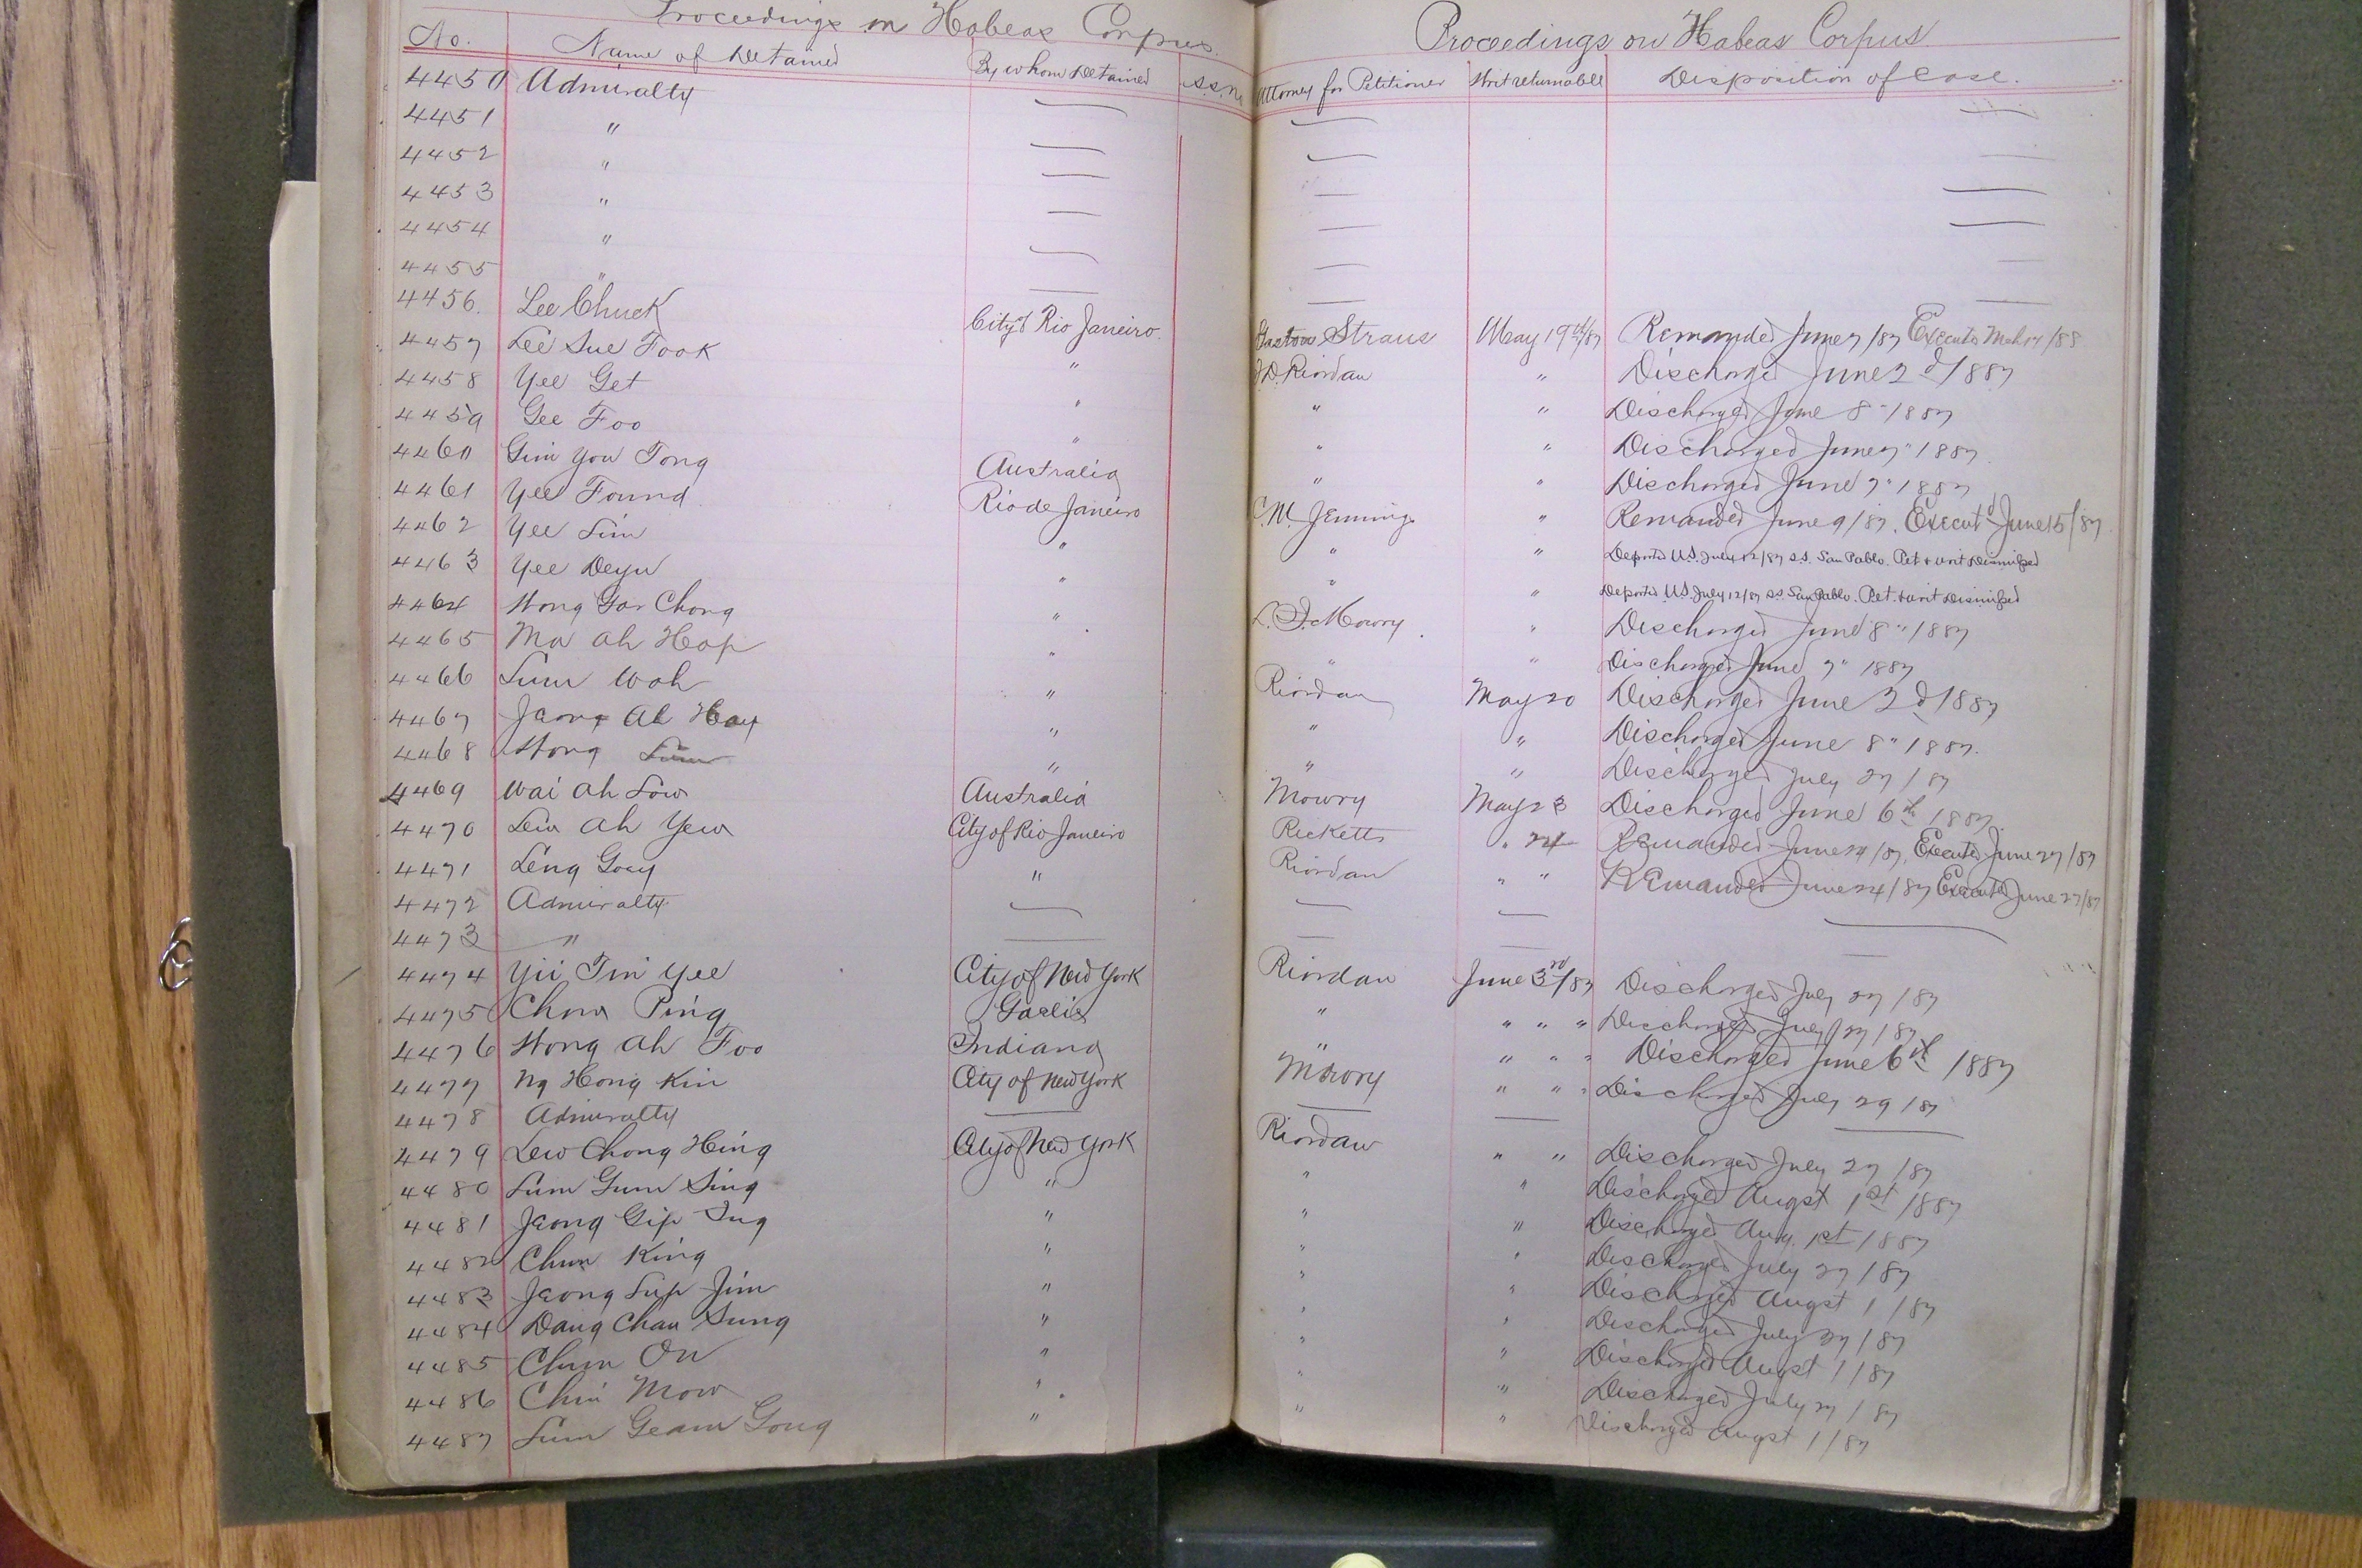 Proceedings on Habeas Corpus.
No. Name of Detained By whom Detained S.S.
4450 Admiralty
4451 "
4452 "
4453 "
4454 "
4455 "
4456. Lee Chuck City of Rio Janeiro
4457 Lee Sue Fook "
4458 Yee Get "
4459 Gee Foo "
4460 Gim You Tong Australia
4461 Yee Found Rio de Janeiro
4462 Yee Lim "
4463 Yee Deyu "
4464 Wong Gar Chong "
4465 Ma Ah Hop "
4466 Lum Wah "
4467 Jeong Ah Hay "
4468 Wong Lum "
4469 Wai Ah Low Australia
4470 Lew Ah Yew City of Rio Janeiro
4471 Leng Goey "
4472 Admiralty
4473 "
4474 Yii Tin Yee City of New York
4475 Chow Ping Gaelic
4476 Wong Ah Foo Indiana
4477 Ng Hong Kin City of New York
4478 Admiralty
4479 Lew Chong Hing City of New York
4480 Lum Gum Sing "
4481 Jeong Gip Sug "
4482 Chun King "
4483 Jeong Lup Jim "
4484 Dang Chau Sung "
4485 Chum On "
4486 Chin Mow "
4487 Lum Geam Gong "
Proceedings on Habeas Corpus
Attorney for Petitioner Writ returnable Disposition of Case.
Straus May 19th/87 Remanded June 7/87 Executed Mch 17/88
J.D. Riordan " Discharged June 2d/1887
" " Discharged June 8" 1887
" " Discharged June 7" 1887
" " Discharged June 7" 1887
C.M. Jennings " Remanded June 9/87. Execut'd June 15/87
" " Deported U.S. July 12/87 S.S. San Pablo. Pet & writ Dismissed
" " Deported U.S. July 12/87 S.S. San Pablo. Pet. & writ Dismissed
L.I. Mowry " Discharged June 8" 1887
" " Discharged June 7" 1887
Riordan May 20 Discharged June 2d/1887
" " Discharged June 8" 1887.
" " Discharged July 27/87
Mowry May 23 Discharged June 6th 1887.
Ricketts " 24 Remanded June 24/87. Executed June 27/87
Riordan " " Remanded June 24/87 Executed June 27/87
Riordan June 3rd/87 Discharged July 27/87
" " " " Discharged July 27/87
" " " " Discharged June 6th 1887
Mowry " " " Discharged July 29/87
Riordan " " Discharged July 27/87
" " Discharged Augst 1st/1887
" " Discharged Aug. 1st/1887
" " Discharged July 27/87
" " Discharged Augst 1/87
" " Discharged July 27/87
" " Discharged Augst 1/87
" " Discharged July 27/87
" " Discharged Augst 1/87